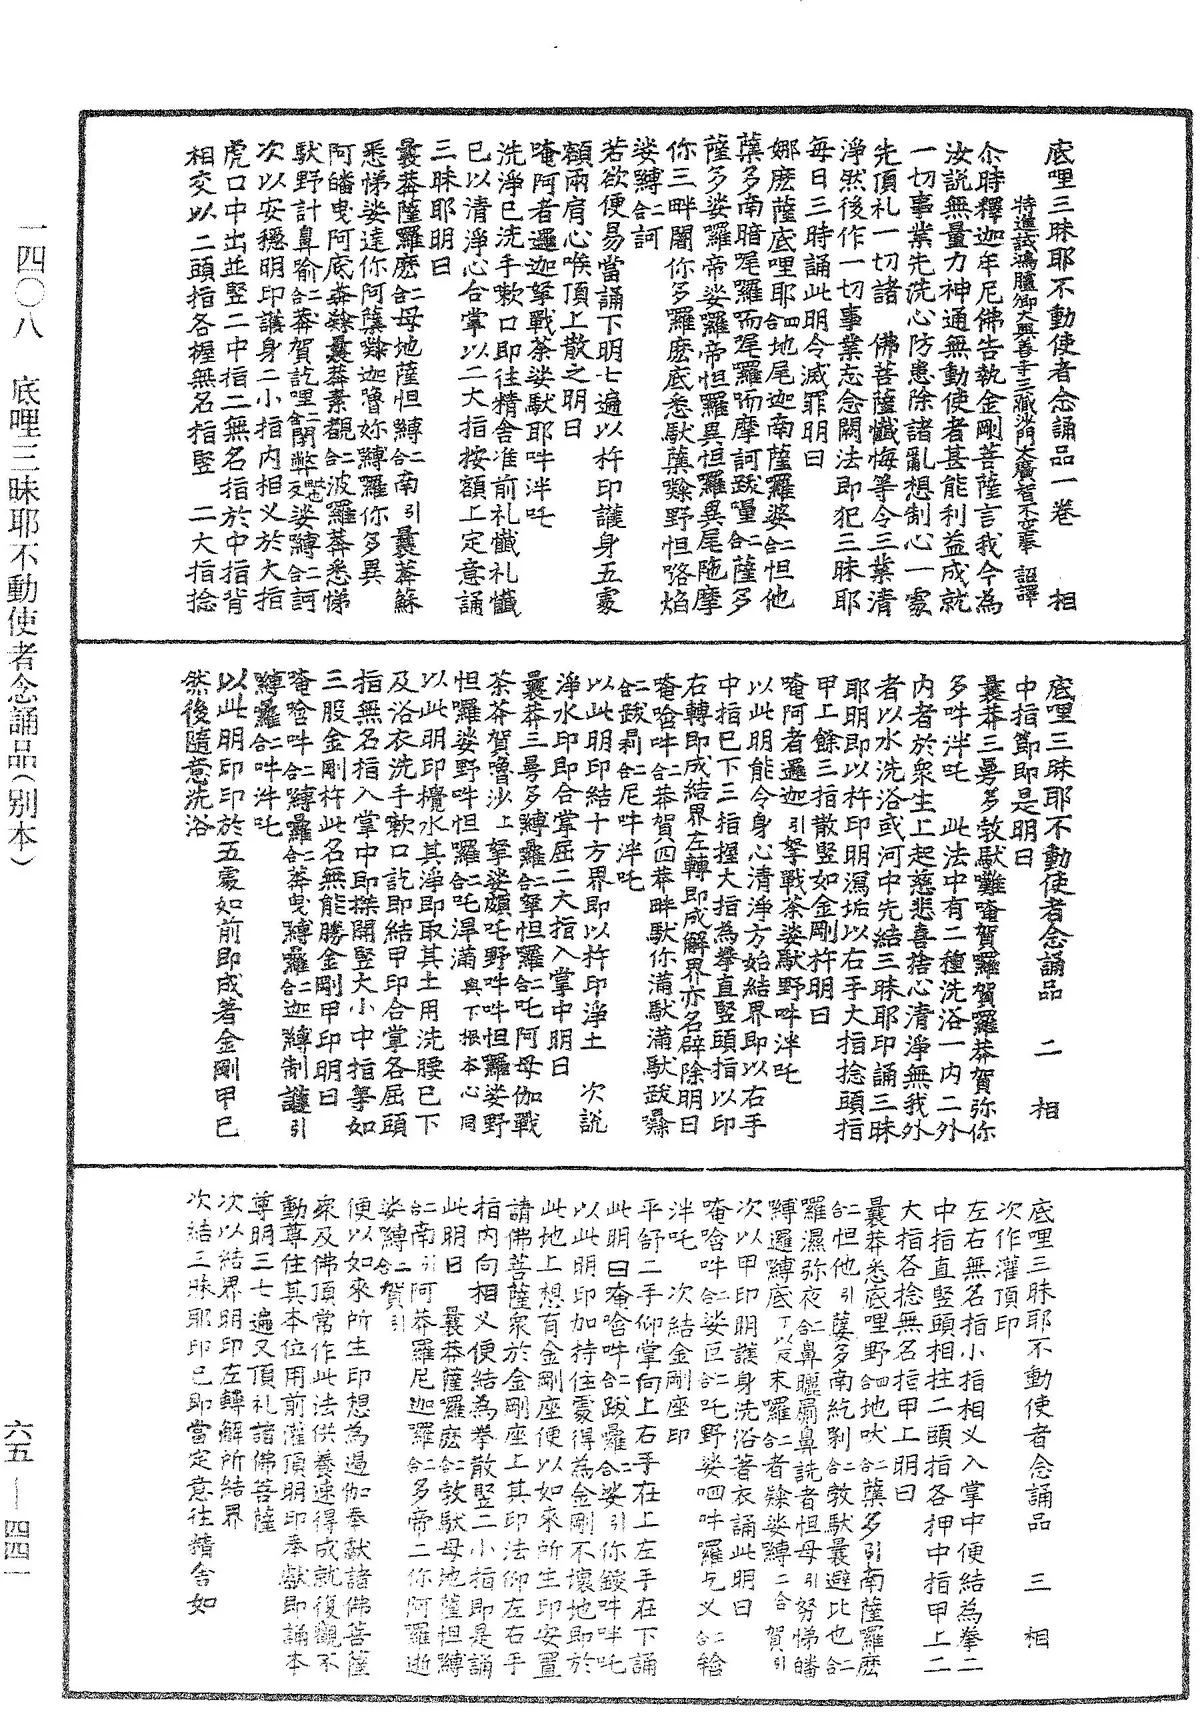 底哩三昧耶不動使者念誦品一卷　相
特進試鴻臚卿大興善寺三藏沙門大廣智不空奉　詔譯
尒時釋迦牟尼佛告執金剛菩薩言我今為
汝說無量力神通無動使者甚能利益成就
一切事業先洗心防患除諸亂想制心一處
先頂礼一切諸　佛菩薩懺悔等令三業清
淨然後作一切事業忘念闕法即犯三昧耶
每日三時誦此明令滅罪明曰
娜麽薩底哩耶四合地尾迦南薩羅婆二合怛他
蘖多南暗尾羅而尾羅而摩訶跋㘑二合薩多
薩多娑羅帝娑羅帝怛羅異怛羅異尾陁摩
你三畔闍你多羅麽底悉馱蘖㘑野怛咯焰
娑縛二合訶
若欲便易當誦下明七遍以杵印護身五處
額兩肩心喉頂上散之明曰
唵阿者邏迦拏戰荼娑馱耶吽泮吒
洗淨已洗手嗽口即往精舍准前礼懺礼懺
已以清淨心合掌以二大指按額上定意誦
三昧耶明曰
曩莽薩羅麽二合母地薩怛縛二合南引曩莽穌
悉悌娑達你阿蘖㘑迦嚕妳縛羅你多異
阿皤曳阿底莽㘑曩莽素覩二合波羅莽悉悌
馱野計鼻喻二合莽賀訖哩二合閇弊毗也反娑縛二合訶
次以安穩明印護身二小指內相乂於大指
虎口中出並竪二中指二無名指於中指背
相交以二頭指各握無名指竪　二大指捻
底哩三昧耶不動使者念誦品　二　相
中指節即是明曰
曩莽三曼多敎馱囉唵賀囉賀囉莽賀弥你
多吽泮吒　此法中有二種洗浴一內二外
內者於衆生上起慈悲喜捨心清淨無我外
者以水洗浴或河中先結三昧耶印誦三昧
耶明即以杵印明㵼垢以右手大指捻頭指
甲上餘三指散竪如金剛杵明曰
唵阿者邏迦引拏戰荼娑馱野吽泮吒
以此明能令身心清淨方始結界即以右手
中指已下三指握大指為拳直竪頭指以印
右轉即成結界左轉即成解界亦名辟除明曰
唵唅吽二合莽賀四莽畔馱你滿馱滿馱跋㘑
二合跋剌二合尼吽泮吒
以此明印結十方界即以杵印淨土　次說
淨水印即合掌屈二大指入掌中明曰
曩莽三曼多縛囉二合拏怛羅二合吒阿母伽戰
荼莽賀嚕沙上拏娑頗吒野吽吽怛囉娑野
怛囉娑野吽怛囉二合吒悍滿與下根本心同
以此明印攪水其淨即取其土用洗腰已下
及浴衣洗手嗽口訖即結甲印合掌各屈頭
指無名指入掌中即搩開竪大小中指等如
三股金剛杵此名無能勝金剛甲印明曰
唵唅吽二合縛囉二合莽曳縛囉二合迦縛制謹引
縛囉二合吽泮吒
以此明印印於五處如前即成著金剛甲已
然後隨意洗浴
底哩三昧耶不動使者念誦品　三　相
次作灌頂印
左右無名指小指相乂入掌中便結為拳二
中指直竪頭相拄二頭指各押中指甲上二
大指各捻無名指甲上明曰
曩莽悉底哩野四合地吠二合蘖多引南薩羅麽
二合怛他引蘖多南紇剃二合敎馱曩避比也二合
羅濕弥夜二合鼻曬罽鼻詵者怛母引努悌皤
縛邏縛底丁以反末羅二合者㘑娑縛二合賀引
次以甲印明護身洗浴著衣誦此明曰
唵唅吽二合娑叵二合吒野娑呬吽羅乞乂二合𤚥
泮吒　次結金剛座印
平舒二手仰掌向上右手在上左手在下誦
此明曰唵唅吽二合跋囉二合娑引你鍐吽泮吒
以此明印加持住處得為金剛不壞地即於
此地上想有金剛座便以如來所生印安置
請佛菩薩衆於金剛座上其印法仰左右手
指內向相乂便結為拳散竪二小指即是誦
此明曰　曩莽薩囉麽二合敎馱母地薩怛縛
二合南引阿莽羅尼迦羅二合多帝二你阿羅逝
娑縛二合賀引
便以如來所生印想為遏伽奉獻諸佛菩薩
衆及佛頂常作此法供養速得成就復觀不
動尊住其本位用前灌頂明印奉獻即誦本
尊明三七遍又頂礼諸佛菩薩
次以結界明印左轉解所結界
次結三昧耶印已即當定意往精舍如
一四〇八　底哩三昧耶不動使者念誦品（別本）
六五—四四一